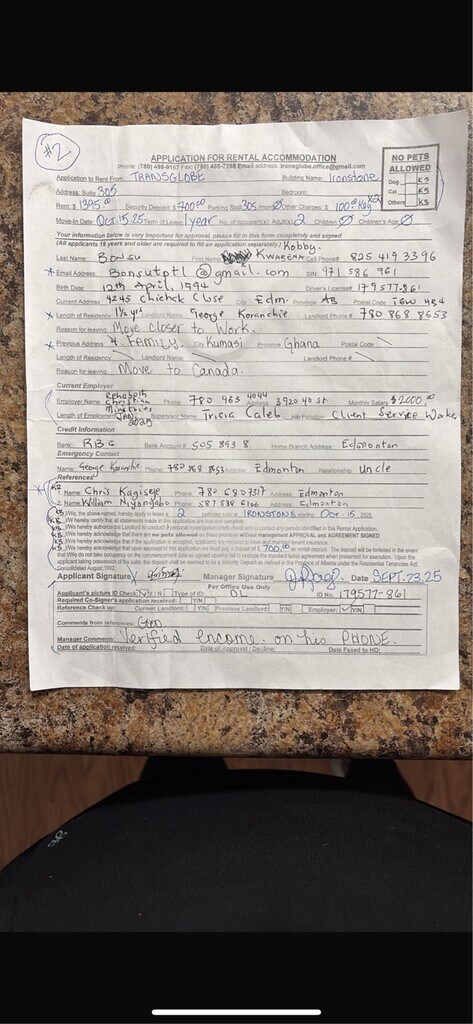 #2
APPLICATION FOR RENTAL ACCOMMODATION
Phone: (780) 488-9157 Fax: (780) 488-7298 Email address: transglobe.office@gmail.com
NO PETS
ALLOWED
Dog KS
Cat KS
Others KS
Application to Rent From: TRANSGLOBE Building Name: Ironstone
Address: Suite 305 Bedroom:
Rent: $ 1395.00 Security Deposit $ 700.00 Parking Stall 305 Other Charges: $ 100.00 Key
Move-In Date: Oct.15.25 Term of Lease 1 year No. of occupant(s): Adult(s) 2 Children Ø Children's Age Ø
Your information below is very important for approval, please fill in this form completely and signed
(All applicants 18 years and older are required to fill an application separately)
Last Name: BONSU First Name Kwabena Kobby. Cell Phone# 825 419 3396
Email Address: Bonsutptl @gmail.com SIN 971 586 961
Birth Date 12th April, 1994 Driver's License# 179577-861
Current Address 4245 Chichak Close City Edm. Province AB Postal Code T6W
Length of Residency 1½ yrs Landlord Name: George Koranchie Landlord Phone # 780 868 8653
Reason for leaving Move closer to Work.
Previous Address 4. FAMILY. City Kumasi Province Ghana Postal Code
Length of Residency Landlord Name: Landlord Phone #
Reason for leaving Move to Canada.
Current Employer
Employer Name Rehoboth Christian Ministries Phone: 780 963 4044 Address: 3920 40 st. Monthly Salary $2000.00
Length of Employment JAN 2025 Supervisor Name: Tricia Caleb Job Function: Client Service Worker
Credit Information
Bank: RBC Bank Account # 505 893 8 Home Branch Address: Edmonton
Emergency Contact
Name: George Koranchie Phone: 780 868 8653 Address: Edmonton Relationship Uncle
References
1. Name: Chris Kagiseye Phone: 780 680 7317 Address: Edmonton
2. Name: William Niyonyabo Phone: 587 588 6106 Address: Edmonton
KB I/We, the above-named, hereby apply to lease a 2 bedroom suite at IRONSTONE starting Oct. 15, 2025
KB I/We hereby certify that all statements made in this application are true and complete.
KB I/We hereby authorize the Landlord to conduct a personal investigation/credit check and to contact any person identified in this Rental Application.
KB I/We hereby acknowledge that there are no pets allowed on these premises without management APPROVAL and AGREEMENT SIGNED
KB I/We hereby acknowledge that if the application is accepted, applicants are required to have and maintain tenant insurance.
KB I/We hereby acknowledge that upon approval of this application we must pay a deposit of $ 700.00 as rental deposit. The deposit will be forfeited in the event
that I/We do not take occupancy on the commencement date as agreed above or fail to execute the standard lease agreement when presented for execution. Upon the
applicant taking possession of the suite, the deposit shall be deemed to be a Security Deposit as defined in the Province of Alberta under the Residential Tenancies Act,
Consolidated August, 1992.
Applicant Signature Manager Signature Date SEPT.23,25
For Office Use Only
Applicant's picture ID Check: Y/N Type of ID: DL ID No. 179577-861
Required Co-Signer's application received: Y/N
Reference Check up: Current Landlord: Y/N Previous Landlord: Y/N Employer: Y/N
Comments from references: Good
Manager Comments: Verified Income. on his PHONE.
Date of application received: Date of Approval / Decline: Date Faxed to HO: